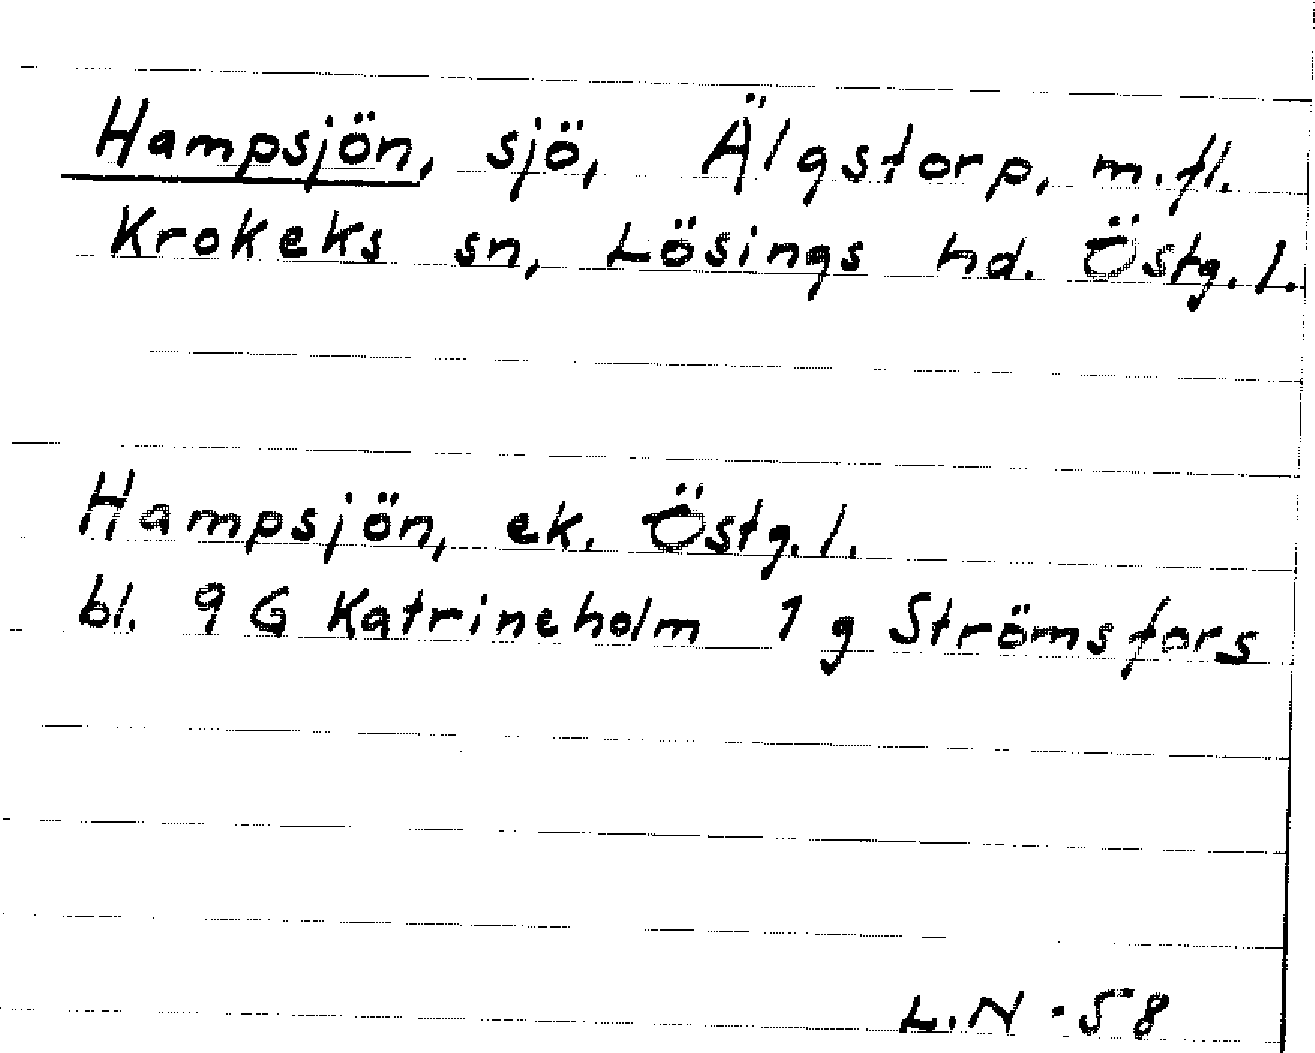 Hampsjön, sjö, Älgstorp, m.fl.
Krokeks sn, Lösings hd. Östg. l.
Hampsjön, ek. Östg. l.
bl. 9 G Katrineholm 1 g Strömsfors
L.N - 58